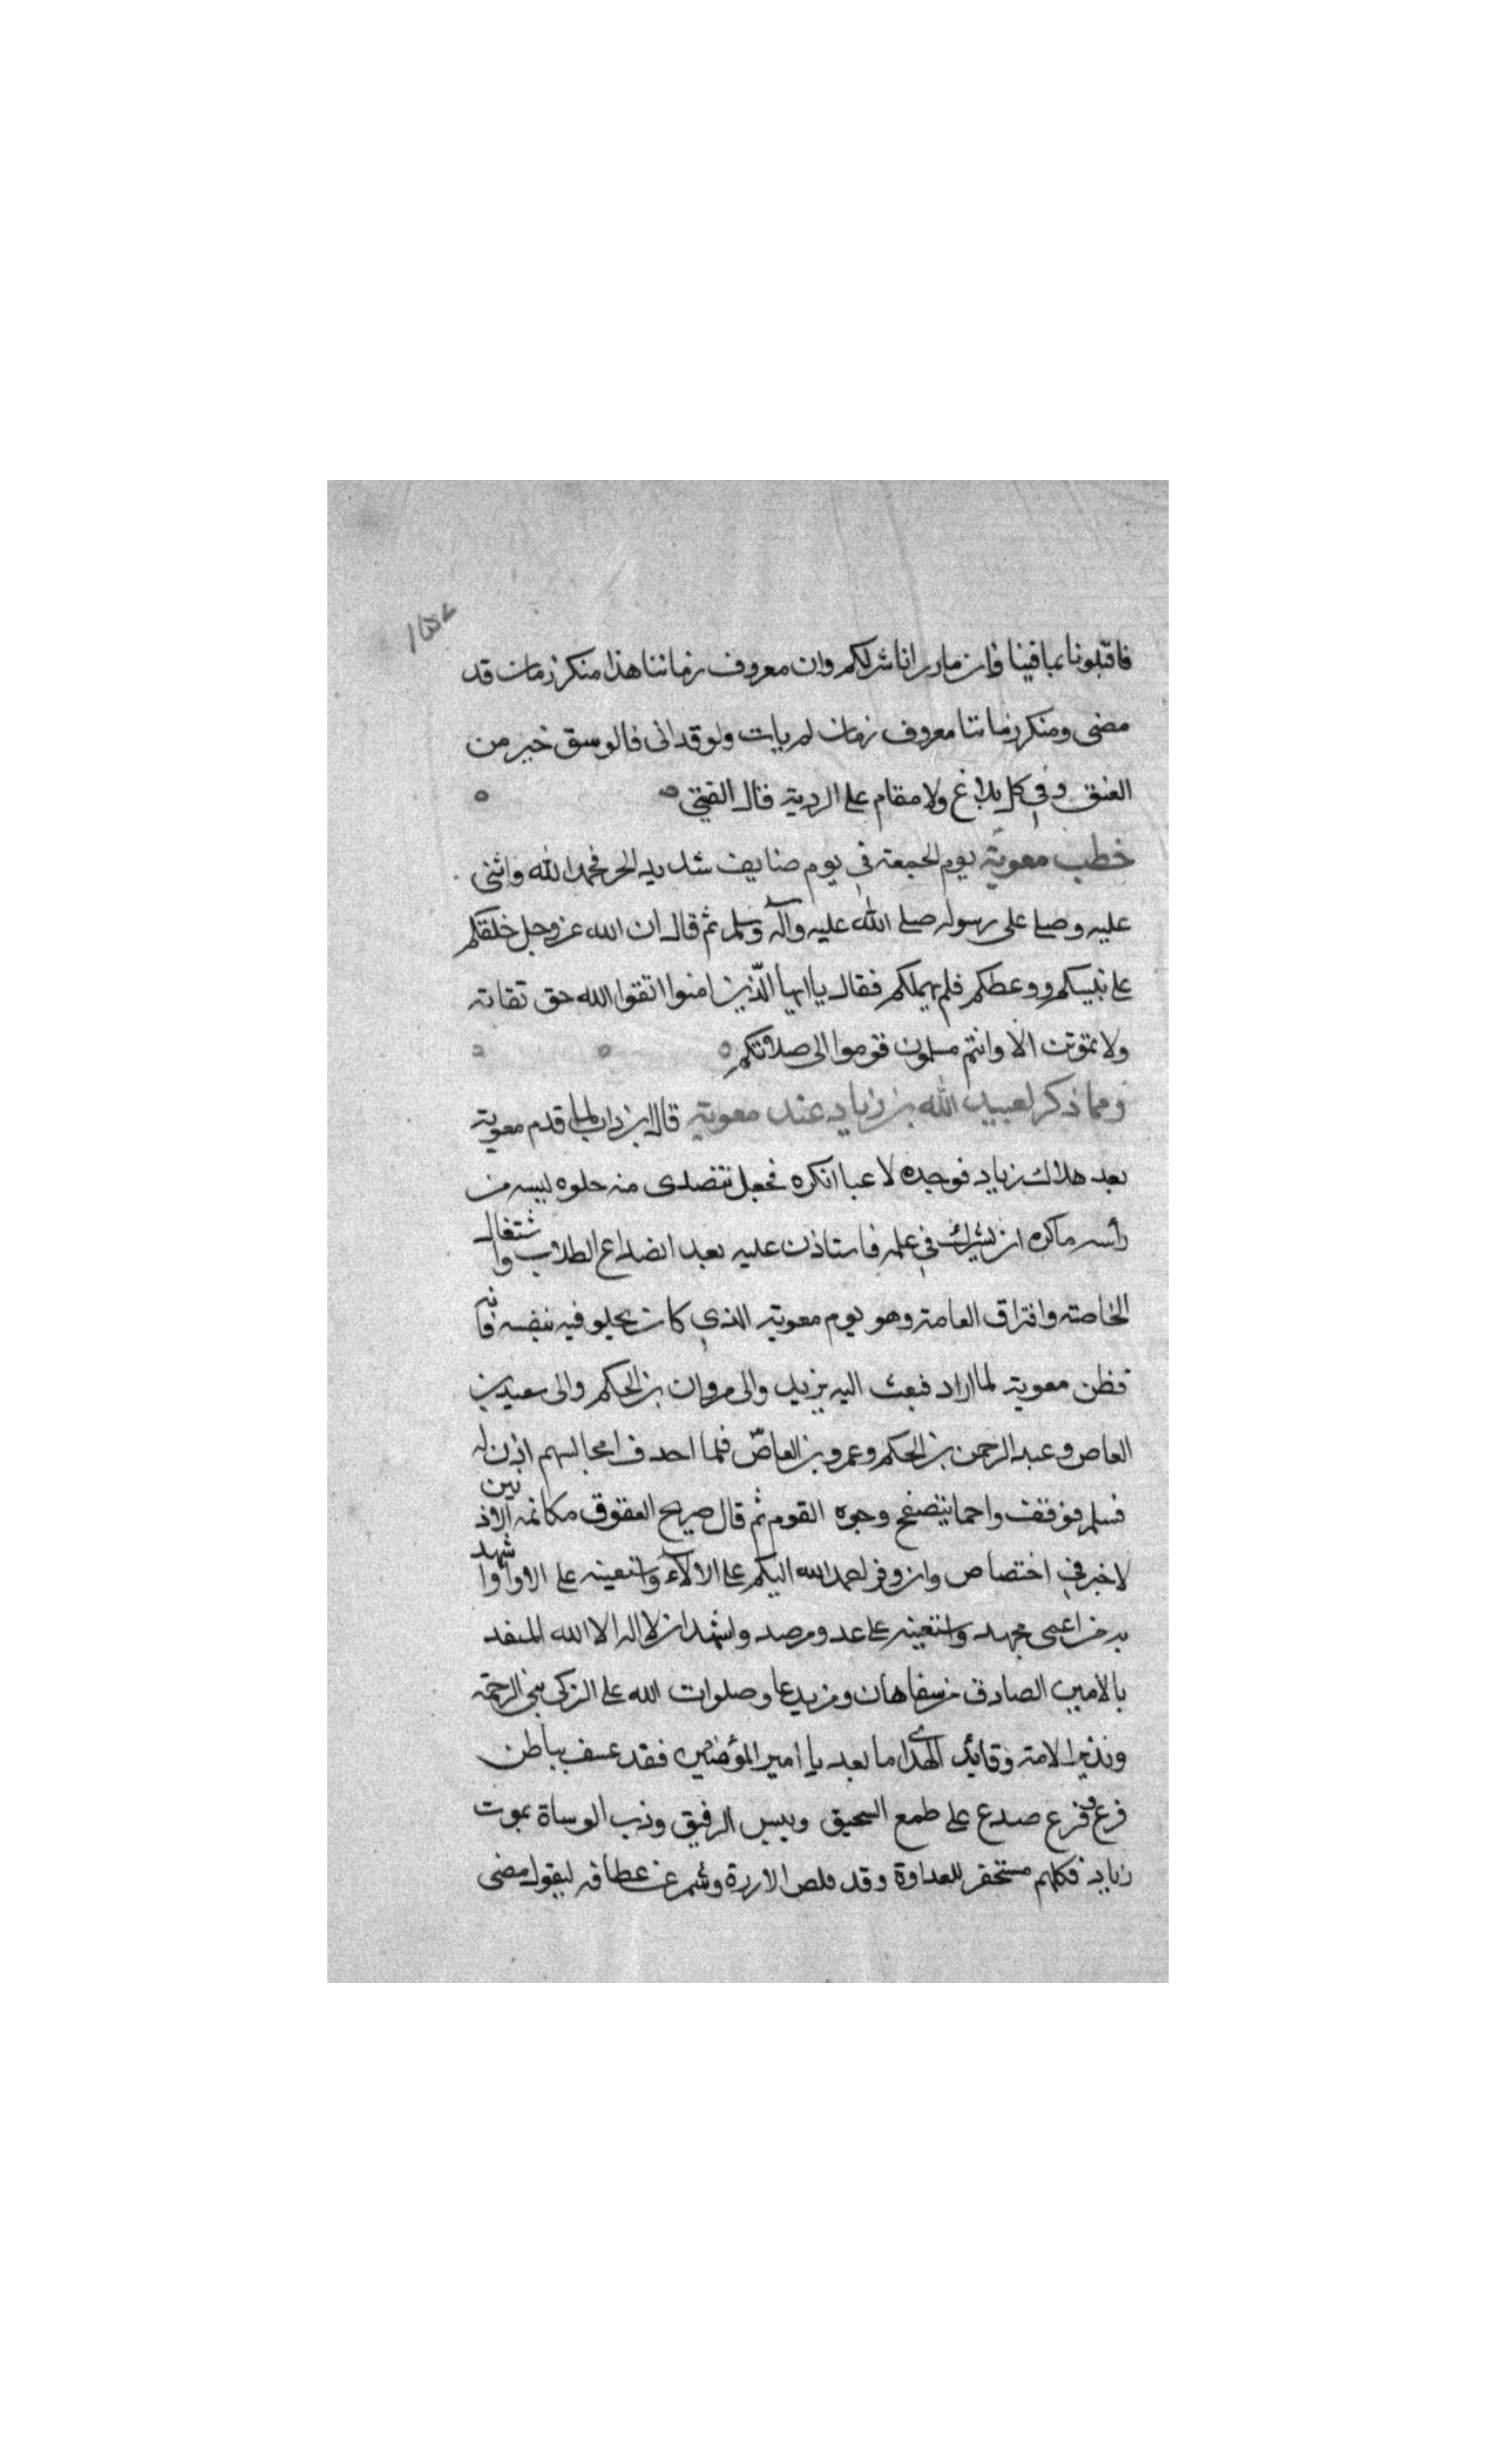 فاقبلونا بما فينا فان ماوراناشرلكم وان معروف زماننا هذا منكر زمان قد
مضى ومنكر زماننا معروف زمان لم يات ولو قد اتى فالوسق خير من
العنق وفي كل بلاغ ولا مقام على الردية قال القيتي
خطب معوية يوم الجمعة في يوم صايف شديد الحر فحمد الله واثنى
عليه وصلى على رسوله صلى الله عليه وآله وسلم ثم قال ان الله عز وجل خلقكم
على نبيسكم ووعظكم فلم يهملكم فقال ياايها الذين امنوا اتقوا الله حق تقاته
ولا تموتن الا وانتم مسلمون قوموا الى صلاتكم
ومما ذكر لعبيد الله بن زياد عند معوية قال ابن داب لما قدم معوية
بعد هلاك زياد فوجده لاعبا انكره فجعل يتصدى منه حلوه ليسه من
راسه ماكره ان يشرك في علمه فاستاذن عليه بعد انصداع الطلاب واشتغال
الخاصة وافتراق العامة وهو يوم معوية الذي كان يخلو فيه بنفسه فانه
فظن معوية لما اراد فبعث اليه يزيد والى مروان بن الحكم والى سعيد بن
العاص وعبد الرحمن بن الحكم وعمرو بن العاص فلما احدف امجالسهم اذن له
فسلم فوقفت واحما يتصفح وجوه القوم ثم قال صريح العقوق مكاتمه الاذنين
لاخير في اختصاص وان وفر احمد الله اليكم على الالآء واستعينه على الاواواشهد
به من اعمى مجهد واستعينه على عدو مرصد واشهد ان لا اله الا الله المنفد
بالامين الصادق من سفاهان ومن يدعا وصلوات الله على الزكي نبي الرحمة
ونذير الامة وقايد الهدى اما بعد يا امير المؤمنين فقد عسف بباطن
فرع وفزع صدع على طمع السحيق وبيبس الرفيق وذب الوساة بموت
زياد فكلهم مستحقر للعداوة وقد قلص الازرة وشمر عن عطافه ليقول مضى